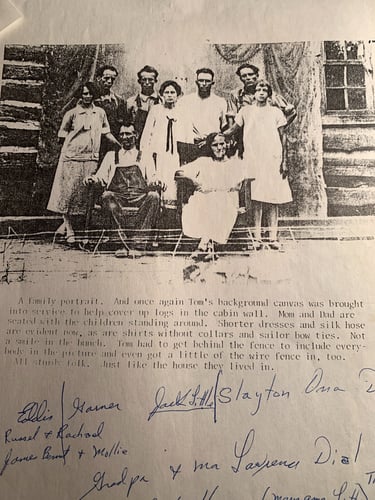 A family portrait. And once again Tom's background canvas was brought
into service to help cover up logs in the cabin wall. Mom and Dad are
seated with the children standing around. Shorter dresses and silk hose
are evident now, as are shirts without collars and sailor bow ties. Not
a smile in the bunch. Tom had to get behind the fence to include every-
body in the picture and even got a little of the wire fence in, too.
All study folk. Just like the house they lived in.
Eddis / Garner Jack Little / Slayton Ona D
Russel & Rachael
James Bent & Mollie
Grandpa & ma Laurena Dial